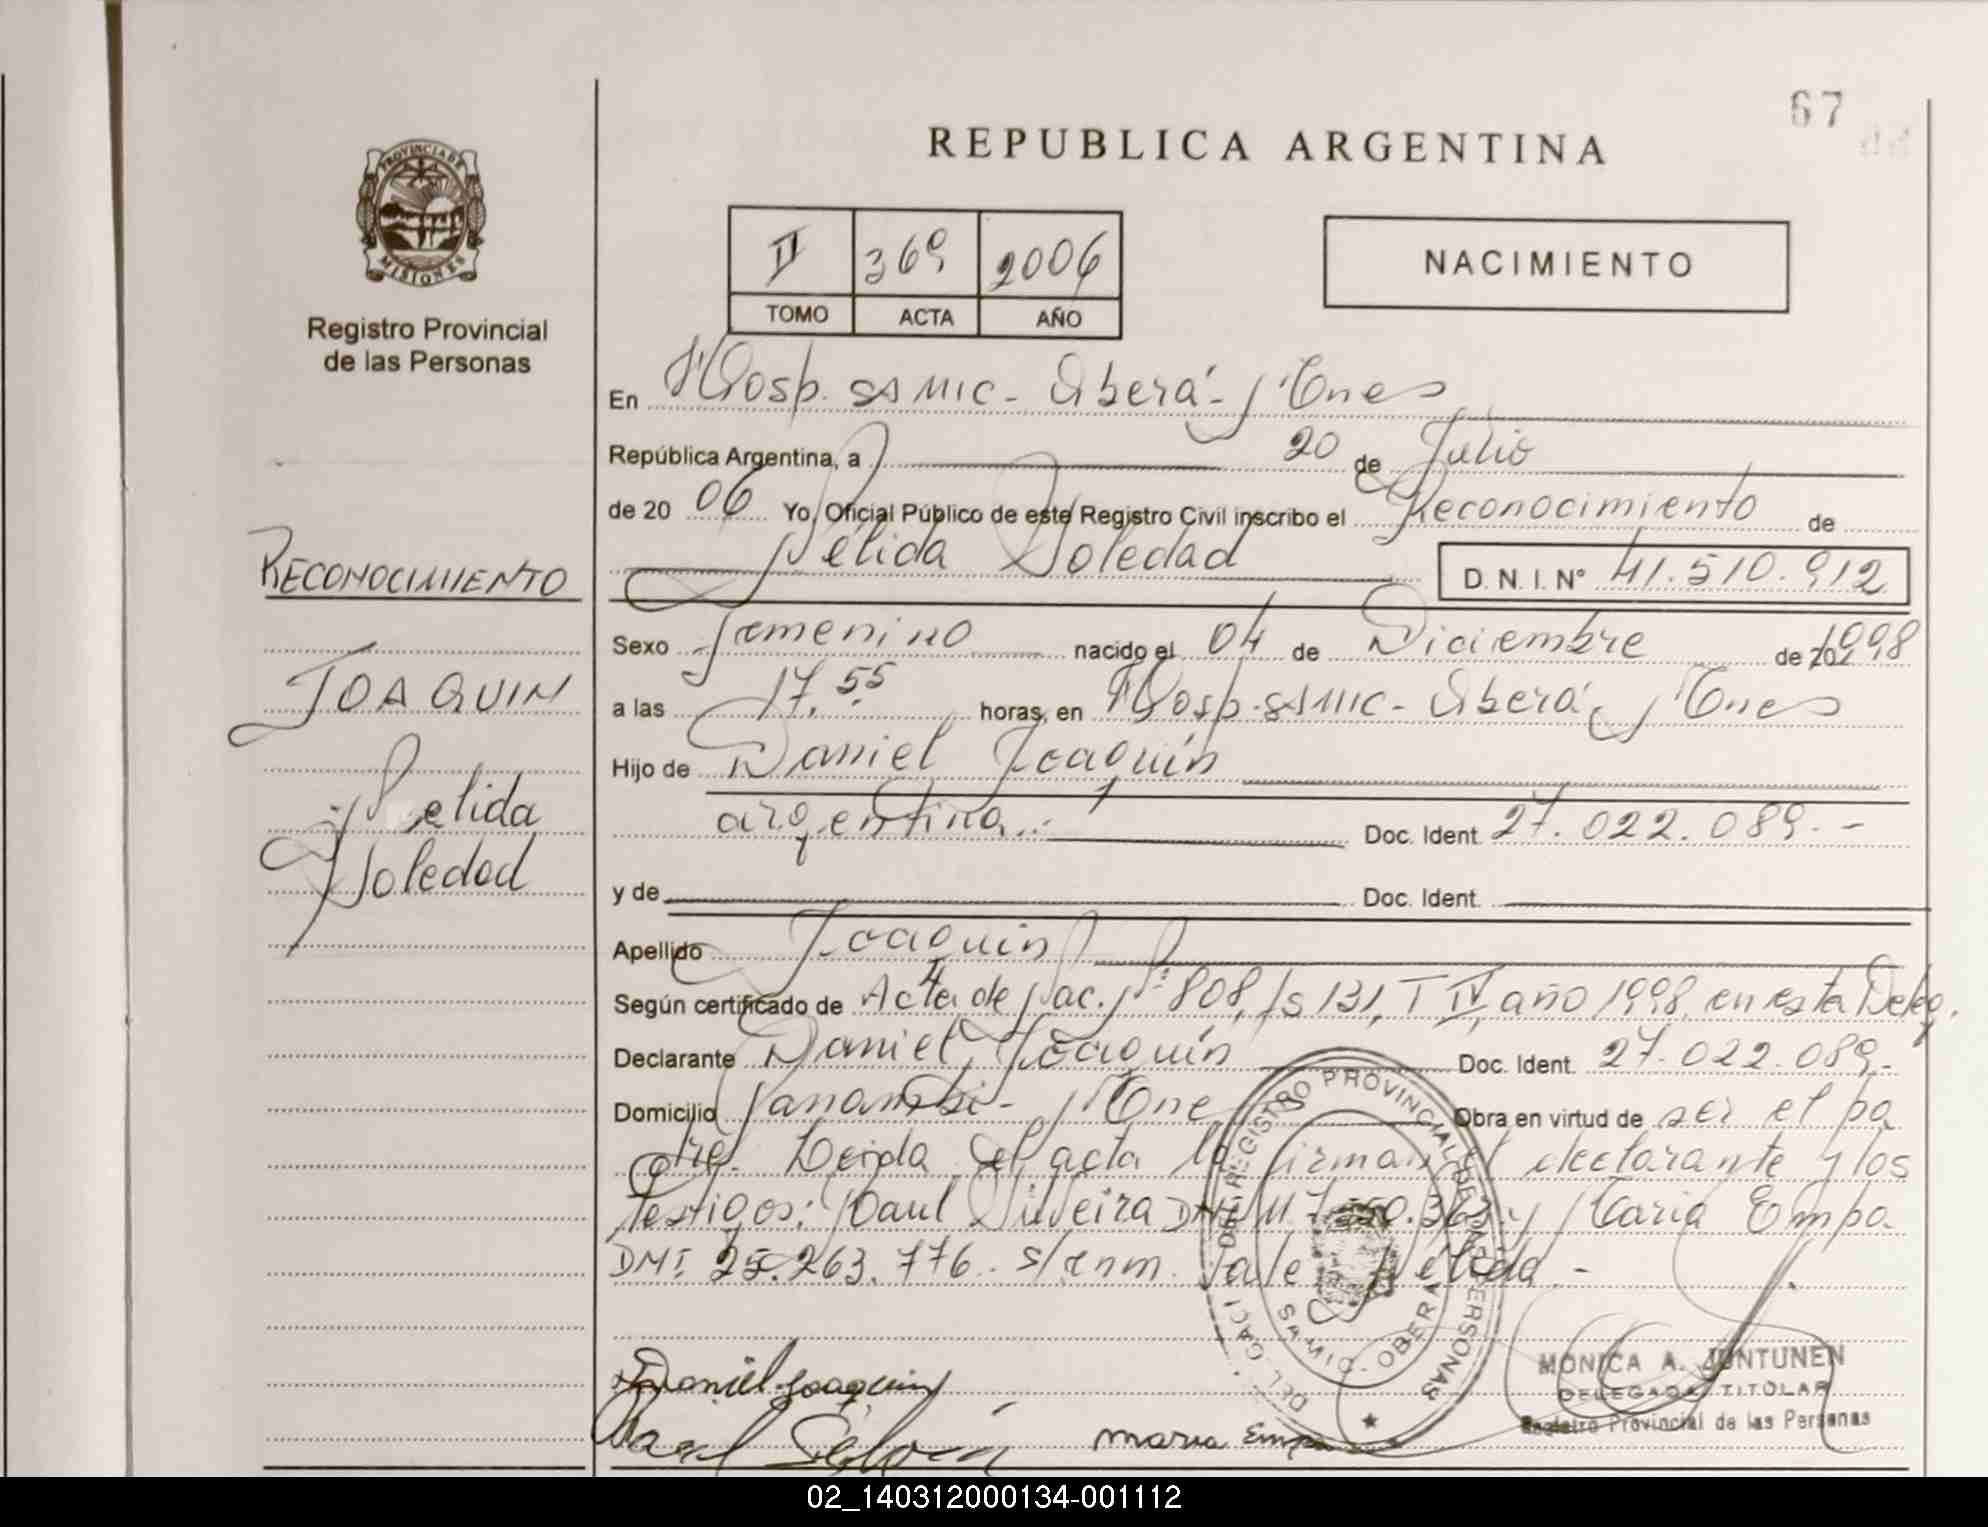 67
REPUBLICA ARGENTINA
PROVINCIA DE
MISIONES
Registro Provincial
de las Personas
II 369 2006
TOMO ACTA AÑO
NACIMIENTO
En Hosp. SAMIC - Oberá - Mnes
República Argentina, a 20 de Julio
de 20 06 Yo, Oficial Público de este Registro Civil inscribo el Reconocimiento de
Nélida Soledad D. N. I. N° 41.510.912
RECONOCIMIENTO
JOAQUIN
Nelida
Soledad
Sexo Femenino nacido el 04 de Diciembre de 20 1998
a las 17.55 horas, en Hosp. SAMIC - Oberá, Mnes
Hijo de Daniel Joaquín
argentina.- Doc. Ident. 27.022.089.-
y de Doc. Ident.
Apellido Joaquín
Según certificado de Acta de Nac. Nº 808, fs 131, T IV, año 1998, en esta Deleg.
Declarante Daniel Joaquín Doc. Ident. 27.022.089.-
Domicilio Panambí - Mnes Obra en virtud de ser el pa
dre. Leida el acta la firman el declarante y los
Testigos: Raul Silveira DNI y Maria Empa
DNI 25.263.776. s/enm. Vale Nélida.-
Daniel Joaquin
maria Empa
DEL REGISTRO PROVINCIAL DE LAS PERSONAS
OBERA
MONICA A. JUNTUNEN
DELEGADA TITULAR
Registro Provincial de las Personas
02_140312000134-001112